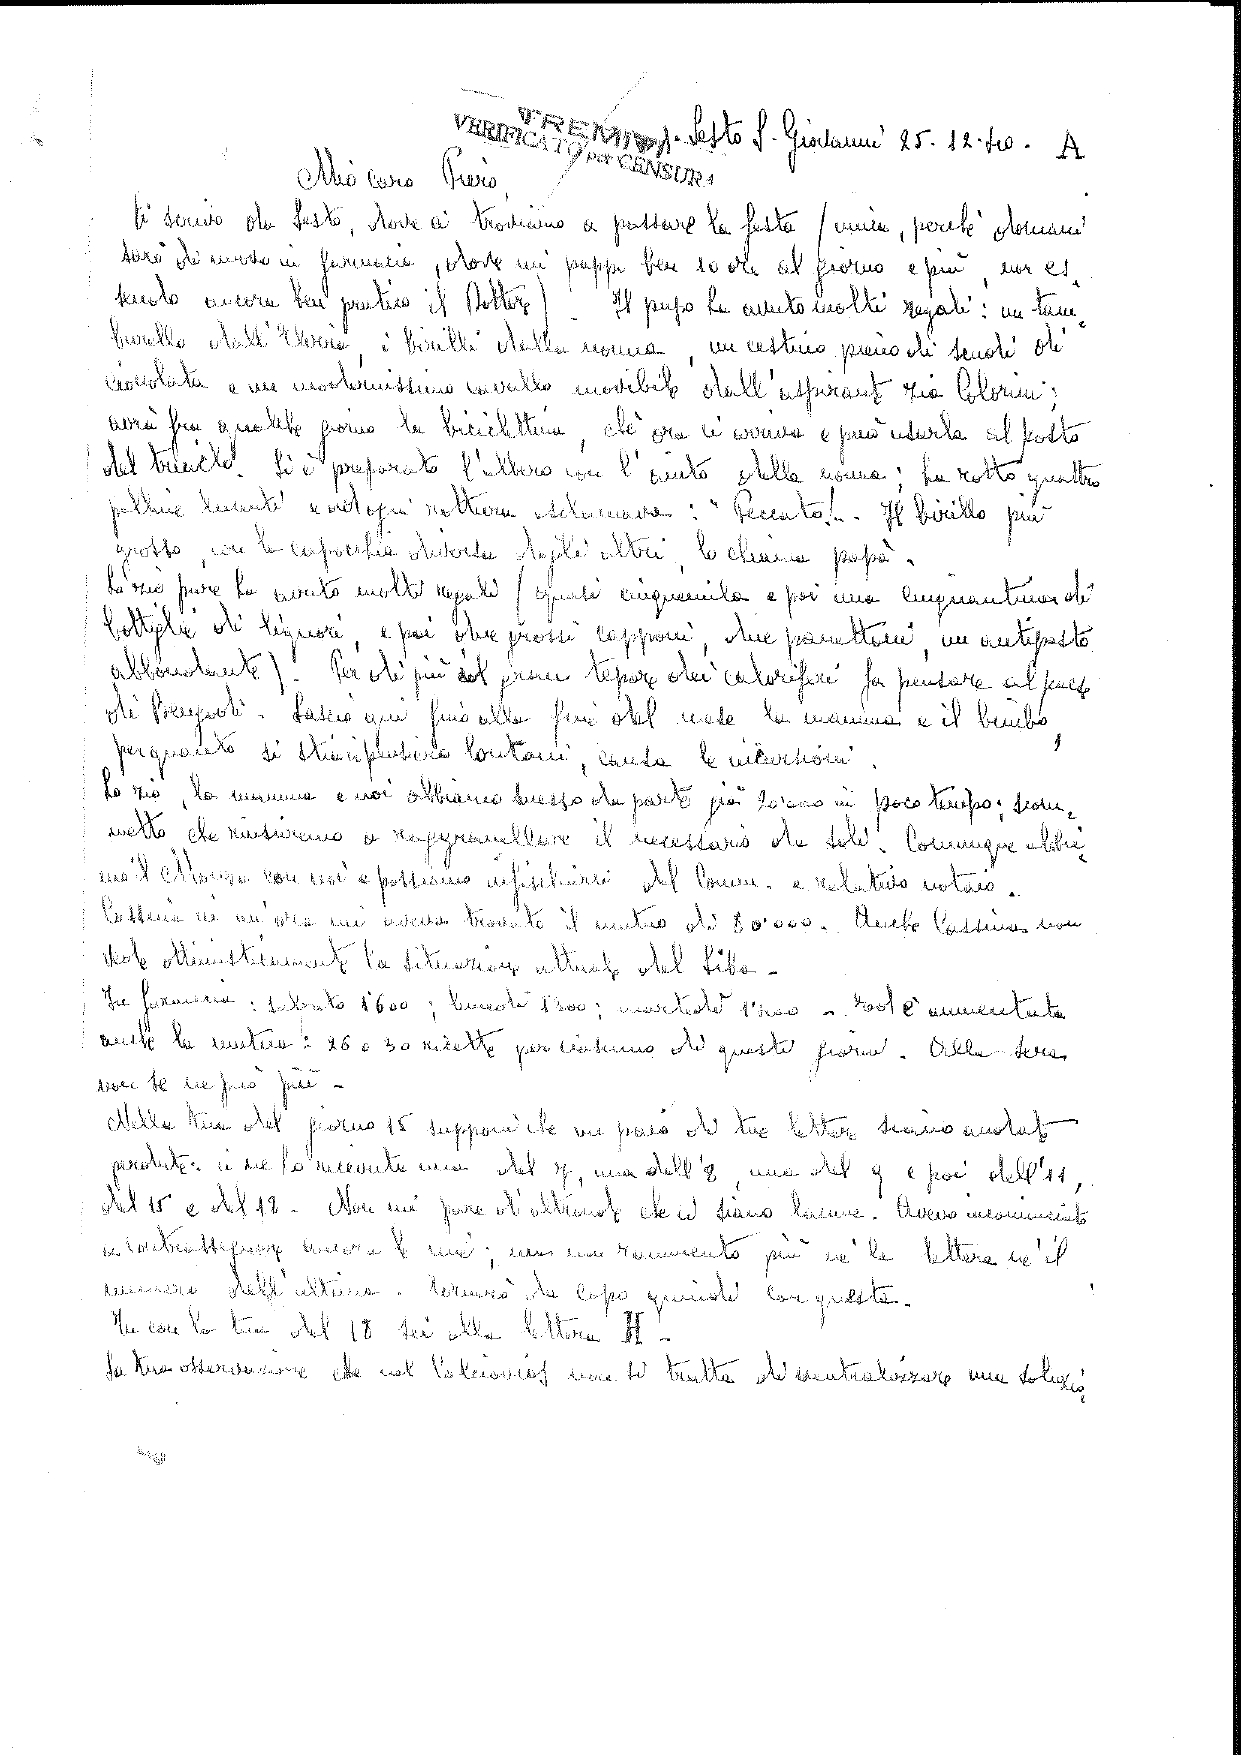 TREMITI
VERIFICATO per CENSURA
Sesto S. Giovanni 25.12.40. A
Mio caro Piero,
Ti scrivo da Sesto, dove ci troviamo a passare la festa (unica, perchè domani
sarò di nuovo in farmacia, dove mi pappo ben 10 ore al giorno e più, non es-
sendo ancora ben pratico il Dottore). Il pupo ha avuto molti regali: un tam-
burello dall' i birilli della nonna, un cestino pieno di scudi di
cioccolata e un modernissimo cavallo movibile dall'aspirante zia Colorni;
avrà fra qualche giorno la biciclettina, chè ora ci arriva e può usarla al posto
del triciclo. Si è preparato l'albero con l'aiuto della nonna; ha rotto quattro
palline lucenti e ad ogni rottura esclamava: "Peccato!.. Il birillo più
grosso, con la capocchia diversa dagli altri, lo chiama papà.
Lo zio pure ha avuto molti regali (quasi cinquemila e poi una cinquantina di
bottiglie di liquori, e poi due grossi capponi, due panettoni, un antipasto
abbondante). Per di più il gran tepore dei caloriferi fa pensare al paese
di Lascio qui fino alla fine del mese la mamma e il bimbo,
perquanto si stia in pensiero lontani, causa le incursioni.
Lo zio, la mamma e noi abbiamo messo da parte già in poco tempo; scom-
metto che riusciremo a raggranellare il necessario da soli. Comunque abbia-
mo il con noi e possiamo infischiarci del Comm. e relativo notaio.
Cassina in un'ora mi aveva trovato il mutuo di 80'000. Anche Cassina non
vede ottimisticamente la situazione attuale del
In farmacia: sabato 1600; lunedì 1300; martedì - è aumentata
anche la mutua: 26 o 30 ricette per ciascuno di questi giorni. Alla sera
non se ne può più -
Nella tua del giorno 15 supponi che un paio di tue lettere siano andate
perdute: ce ne ho ricevute una del 7, una dell'8, una del 9 e poi dell'11,
del 15 e del 18. Non mi pare d'altronde che ci siano lacune. Avevo incominciato
a contrassegnare ancora le mie; ma non rammento più nè la lettera nè il
numero dell'ultima. Tornerò da capo quindi con questa.
Tu con la tua del 18 sei alla lettera H -
La tua osservazione che nel non si tratta di neutralizzare una soluzio-